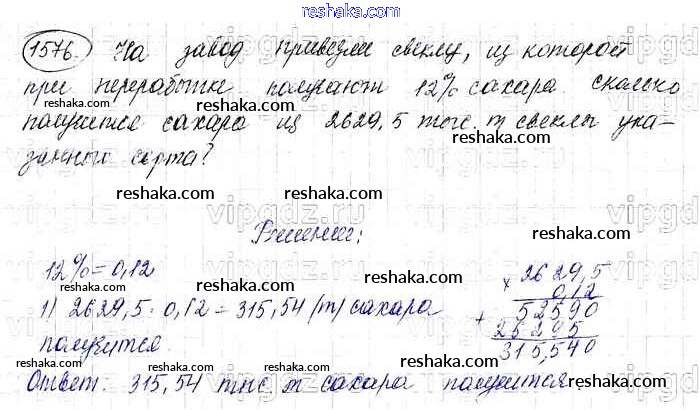 reshaka.com
1576. На завод привезли свеклу, из которой
при переработке получают 12% сахара. Сколько
получится сахара из 2629,5 тыс. т свеклы ука-
занного сорта?
Решение:
12% = 0,12
1) 2629,5 · 0,12 = 315,54 (т) сахара
получится.
× 2629,5
0,12
+ 52590
26295
315,540
Ответ: 315,54 тыс. т сахара получится
reshaka.com
reshaka.com
reshaka.com
reshaka.com
reshaka.com
reshaka.com
reshaka.com
reshaka.com
reshaka.com
reshaka.com
vipgdz.ru
vipgdz.ru
vipgdz.ru